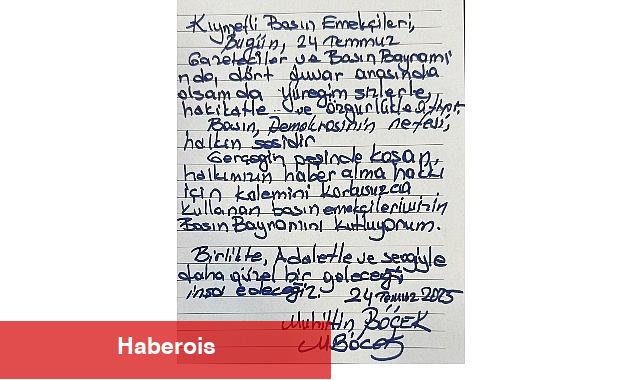 Kıymetli Basın Emekçileri,
Bugün, 24 Temmuz
Gazeteciler ve Basın Bayramı
nda, dört duvar arasında
olsam da yüreğim sizlerle,
hakikatle ve özgürlükle atıyor.
Basın, Demokrasinin nefesi,
halkın sesidir
Gerçeğin peşinde koşan,
halkımızın haber alma hakkı
için kalemini korkusuzca
kullanan basın emekçilerimizin
Basın Bayramını kutluyorum.
Birlikte, Adaletle ve sevgiyle
daha güzel bir geleceği
inşa edeceğiz.
24 Temmuz 2025
Muhittin BÖCEK
MBöcek
Haberois